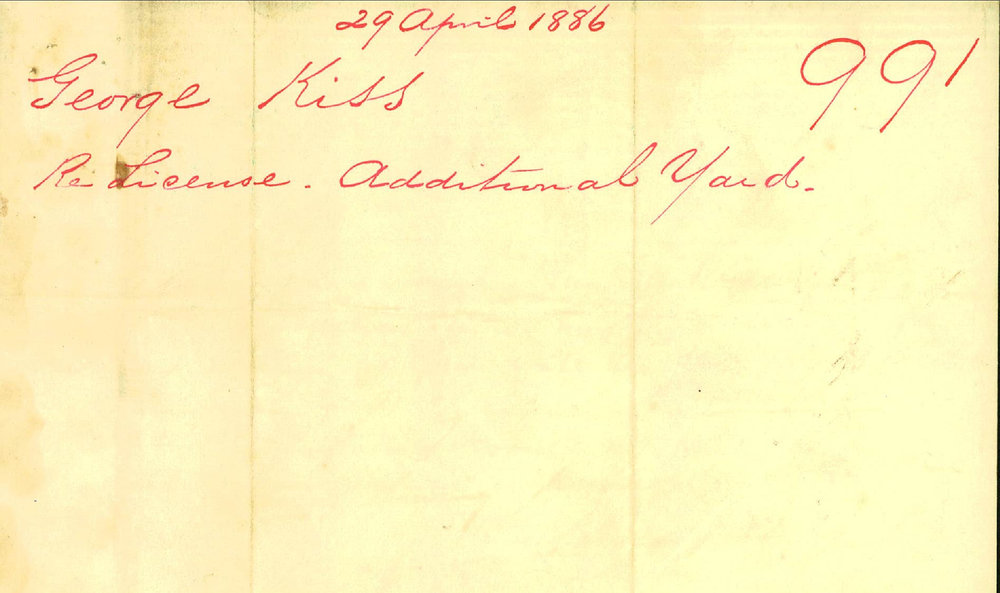 29 April 1886
991
George Kiss
Re License. Additional Yard.